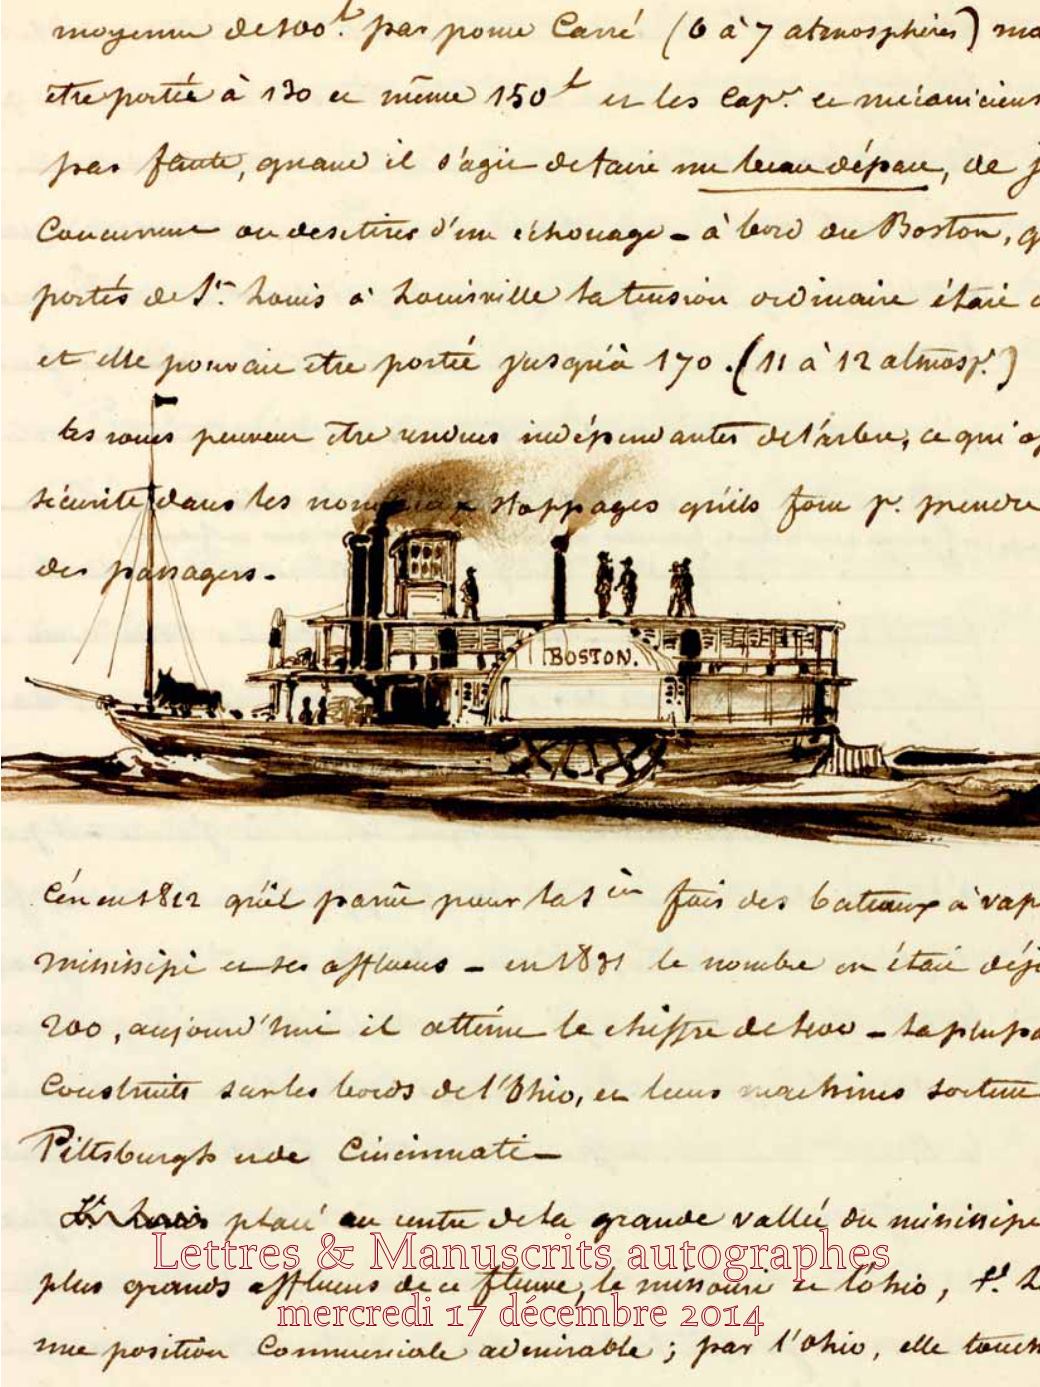 moyenne de 100 l. par pouce Carré (6 à 7 atmosphères) ma
être portée à 130 et même 150 l et les Cap.ⁿ et mécaniciens
pas faute, quand il s'agit de faire un beau départ, de j
Concurrent ou de se tirer d'un échouage - à bord du Boston, q
portés de S.ᵗ Louis à Louisville la tension ordinaire était
et elle pouvait être portée jusqu'à 170. (11 à 12 atmosp.)
Les roues peuvent être rendues indépendantes de l'arbre, ce qui
sécurité dans les nombreux stoppages qu'ils font p.ʳ prendre
des passagers.
BOSTON.
C'est en 1812 qu'il parut pour la 1 ère fois des bateaux à vap
mississipi et ses affluens - en 1831 le nombre en était déj
200, aujourd'hui il atteint le chiffre de - la plupa
Construits sur les bords de l'Ohio, et leurs machines sortent
Pittsburgh et de Cincinnati -
placé au centre de la grande vallée du mississipi
Lettres & Manuscrits autographes
plus grands affluens de ce fleuve, le missouri et l'ohio, S.ᵗ L
mercredi 17 décembre 2014
une position Commerciale admirable ; par l'ohio, elle touch